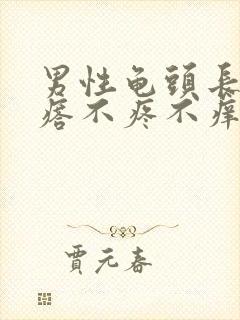 男性龟頭長
痞不疼不痒
賈元春